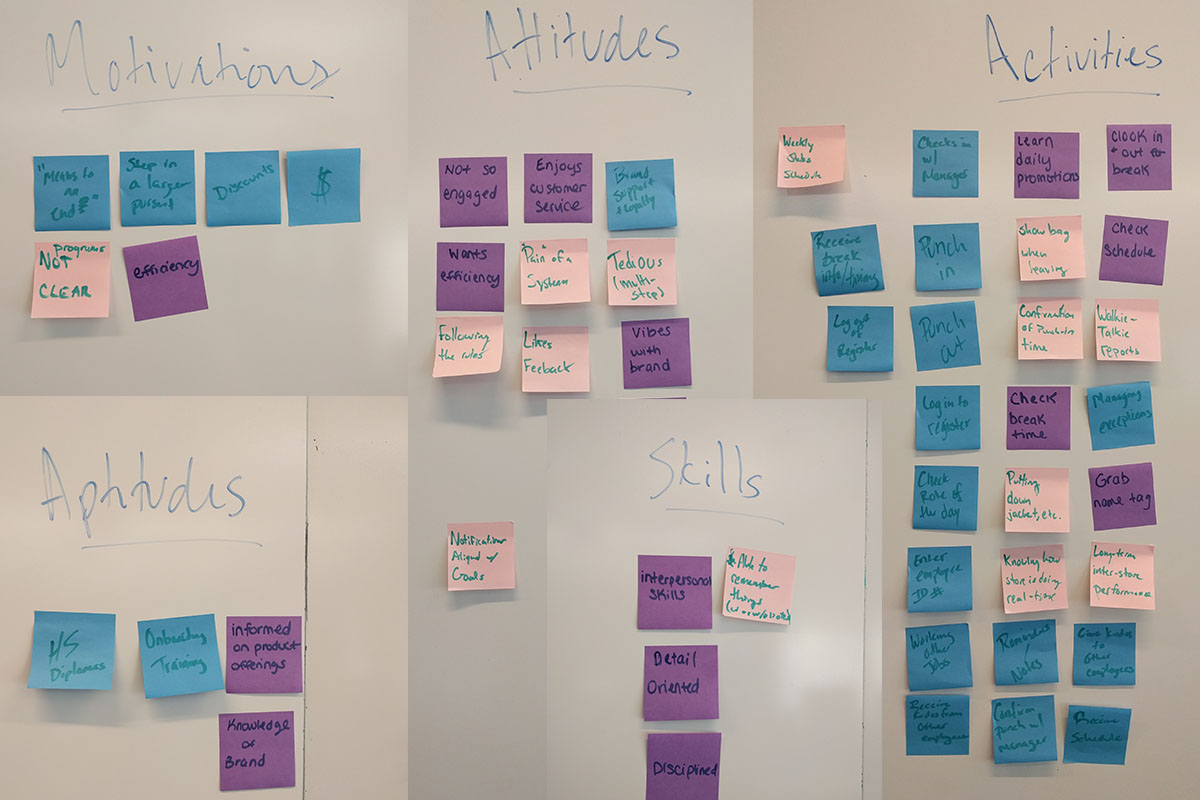 Motivations
"Means to
an
end"
Step in
a larger
pursuit
Discounts
$
programs
NOT
CLEAR
efficiency
Attitudes
Not so
engaged
Enjoys
customer
service
Brand
Support
& Loyalty
Wants
efficiency
"Pain" of a
System
Tedious
(multi-
step)
Following
the rules
Likes
Feeback
Vibes
with
brand
Notifications
Aligned w/
Goals
Activities
Weekly
Sales
Schedule
Checks in
w/
Manager
Learn
daily
promotions
Clock in
+ out for
break
Receive
break
info/timing
Punch
in
Show bag
when
leaving
Check
Schedule
Log out
of
Register
Punch
out
Confirmation
of Punch-In
time
Walkie-
Talkie
reports
Log in to
register
Check
break
time
Managing
exceptions
Check
Role of
the day
Putting
down
jacket, etc.
Grab
name tag
Enter
employee
ID #
Knowing how
store is doing
real-time
Long-term
inter-store
performance
Working
other
Jobs
Reminders
/
Notes
Give kudos
to
other
employees
Receive
kudos from
other
employees
Confirm
punch w/
manager
Receive
Schedule
Aptitudes
HS
Diplomas
Onboarding
Training
informed
on product
offerings
Knowledge
of
Brand
Skills
interpersonal
skills
Able to
remember
things
Detail
Oriented
Disciplined